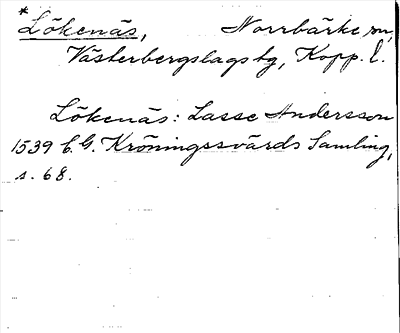 *
Lökenäs, Norrbärke sn,
Västerbergslags tg, Kopp. l.
Lökenäs: Lasse Andersson
1539 C.G. Kröningssvärds Samling,
s. 68.